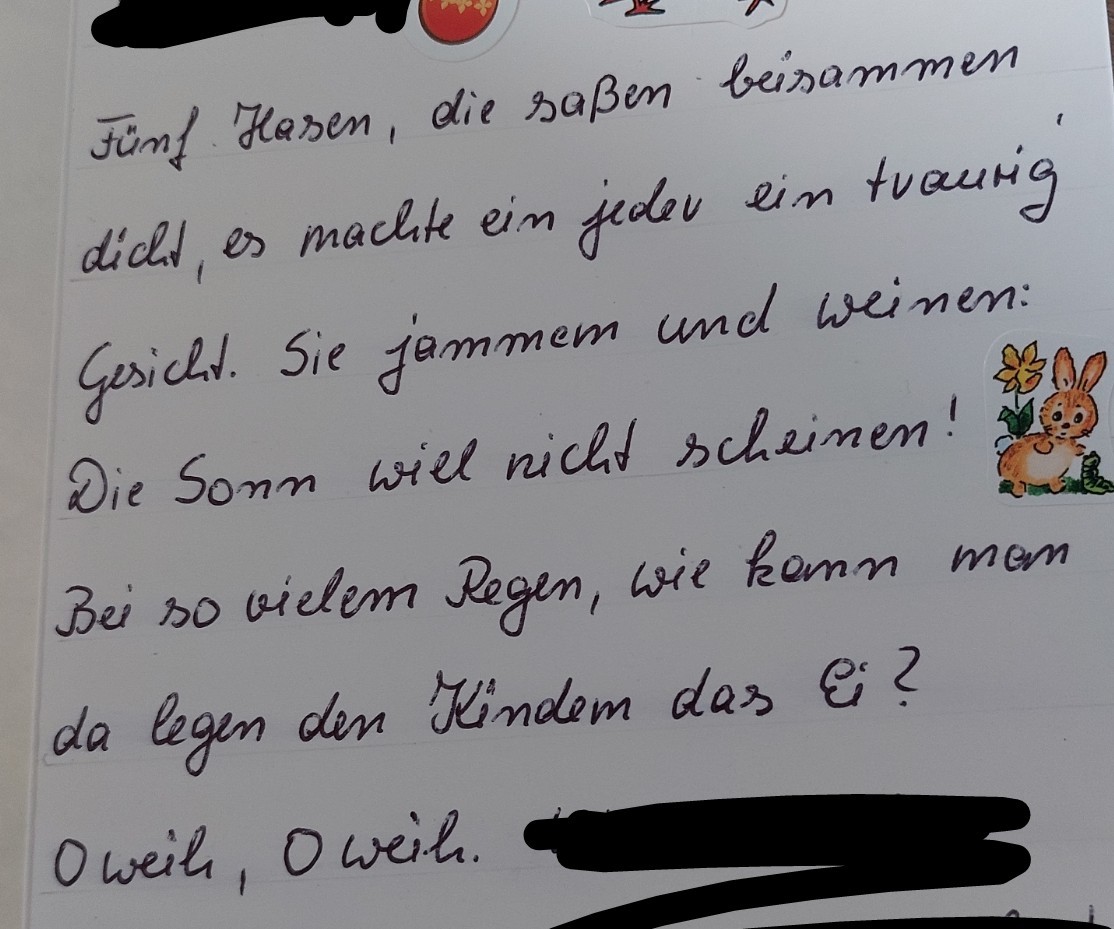 Fünf Hasen, die saßen beisammen
dicht, es machte ein jeder ein traurig'
Gesicht. Sie jammern und weinen:
Die Sonn will nicht scheinen!
Bei so vielem Regen, wie kann man
da legen den Kindern das Ei?
O weih, O weih.